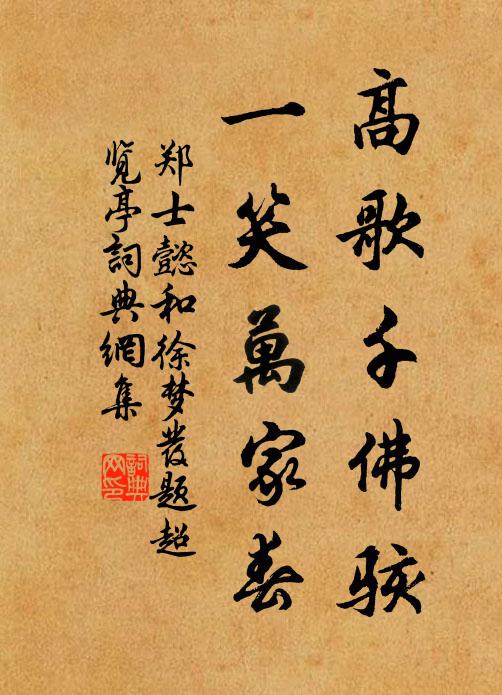 高歌千佛駭
一笑萬家春
郑士懿和徐梦發题超
览亭詞典網集
詞典网印